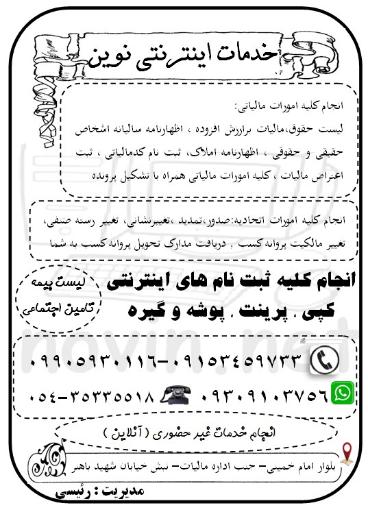 خدمات اینترنتی نوین
انجام کلیه امورات مالیاتی:
لیست حقوق،مالیات برارزش افزوده ، اظهارنامه سالیانه اشخاص
حقیقی و حقوقی ، اظهارنامه املاک، ثبت نام کدمالیاتی ، ثبت
اعتراض مالیات ، کلیه امورات مالیاتی همراه با تشکیل پرونده
انجام کلیه امورات اتحادیه:صدور،تمدید ،تغییرنشانی، تغییر رسته صنفی،
تغییر مالکیت پروانه کسب . دریافت مدارک تحویل پروانه کسب به شما
انجام کلیه ثبت نام های اینترنتی
کپی . پرینت . پوشه و گیره
لیست بیمه
تامین اجتماعی
۰۹۹۰۵۹۳۰۱۱۶-۰۹۱۵۳۴۵۹۷۳۳
۰۵۴-۳۵۳۳۵۵۰۱۸ ۰۹۳۰۹۱۰۳۷۵۶
انجام خدمات غیر حضوری ( آنلاین )
بلوار امام خمینی– جنب اداره مالیات– نبش خیابان شهید باهنر
مدیریت : رئیسی
novin.net